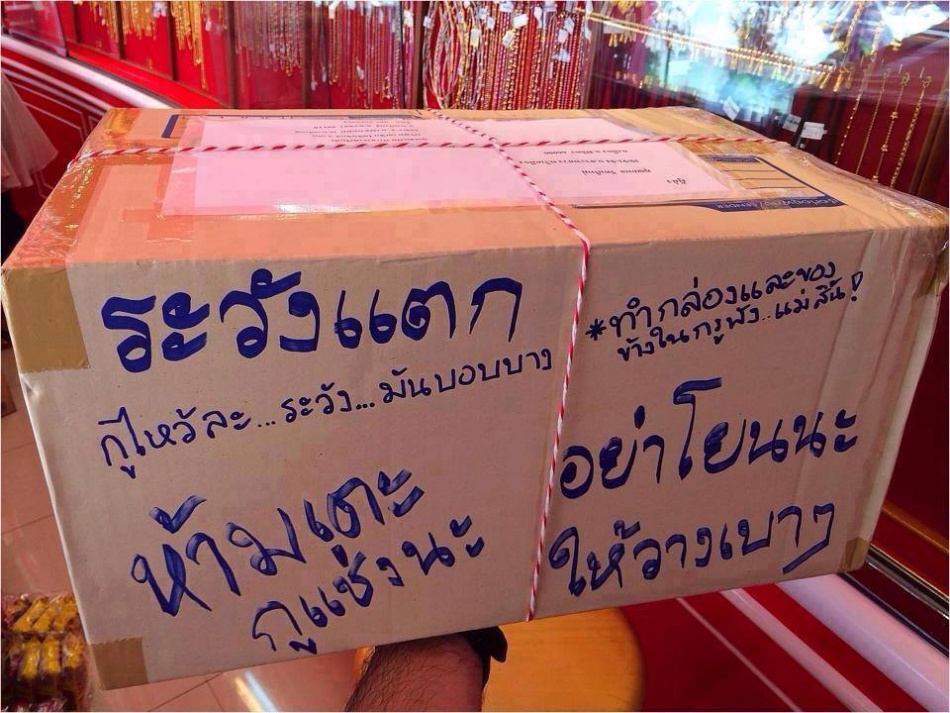 ระวังแตก
กูไหว้ละ...ระวัง...มันบอบบาง
ห้ามเตะ
กูแช่งนะ
*ทำกล่องและของ
ข้างในกรูพัง..แม่มสิ้น!
อย่าโยนนะ
ให้วางเบาๆ